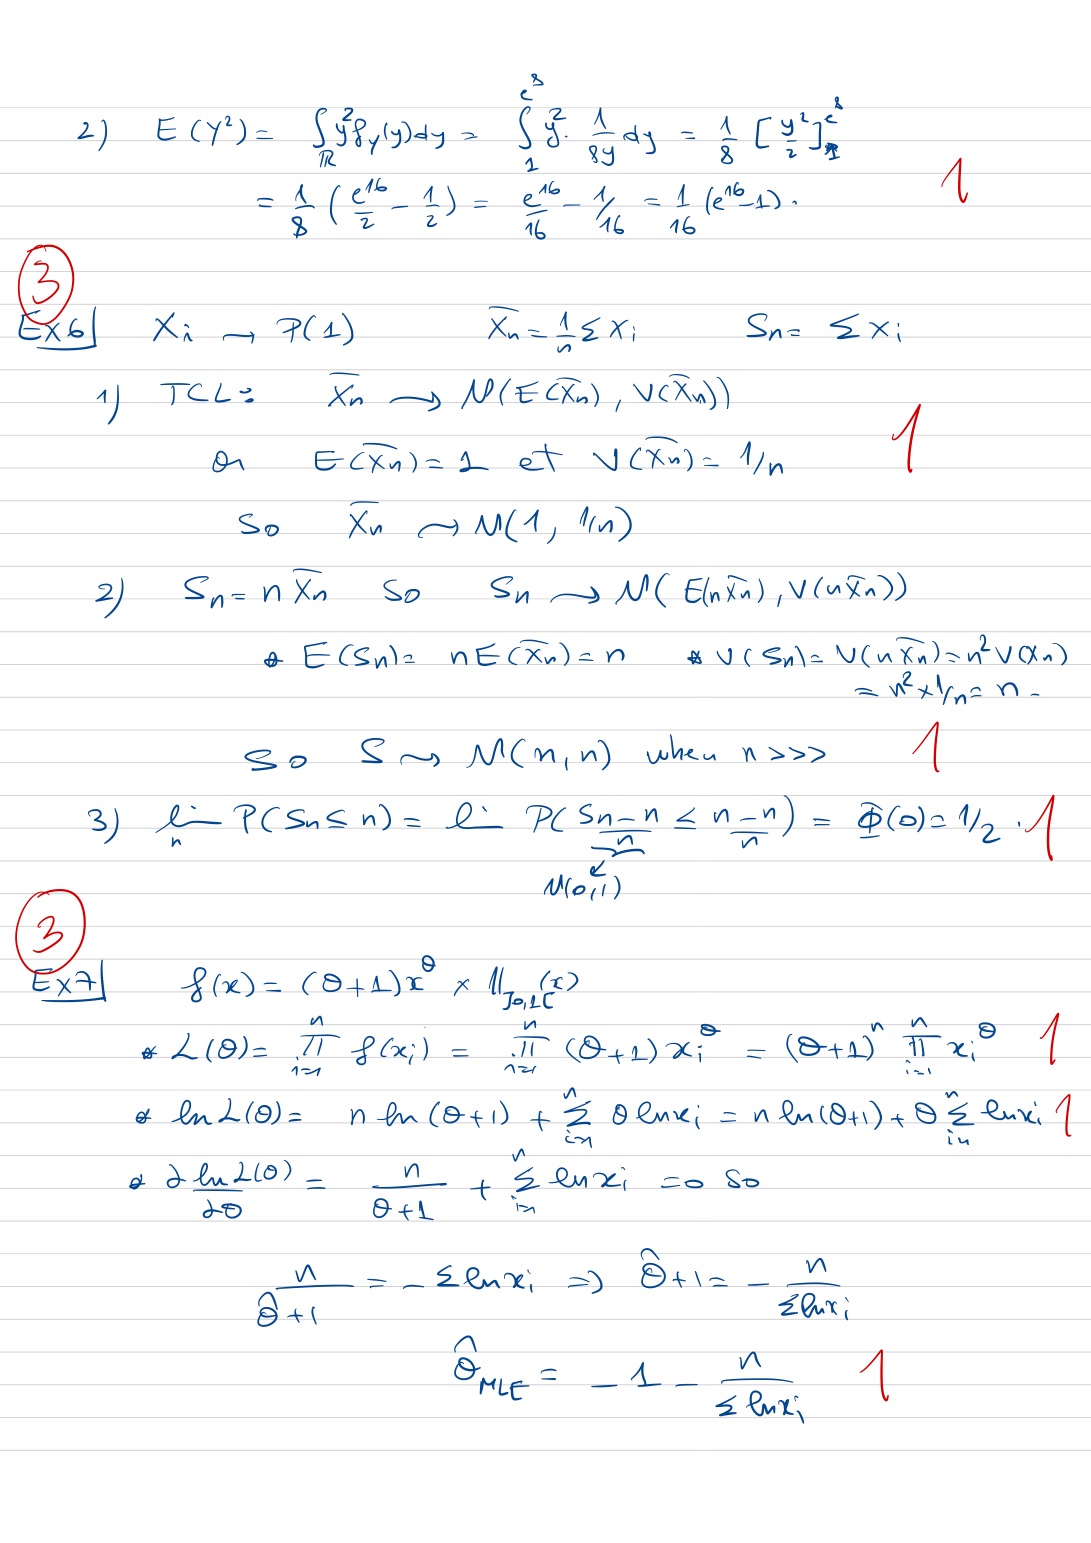 2) E(Y²) = ∫_ℝ y² f_Y(y) dy = ∫_1^{e^8} y² · 1/8y dy = 1/8 [y²/2]_1^{e^8}
= 1/8 (e^16/2 − 1/2) = e^16/16 − 1/16 = 1/16 (e^16 − 1). 1
3
Ex6 Xi ⇝ P(1) X̄n = 1/n Σ Xi Sn = Σ Xi
1) TCL: X̄n ⇝ N(E(X̄n), V(X̄n))
or E(X̄n) = 1 et V(X̄n) = 1/n 1
So X̄n ⇝ N(1, 1/n)
2) Sn = n X̄n so Sn ⇝ N(E(nX̄n), V(nX̄n))
* E(Sn) = n E(X̄n) = n * V(Sn) = V(n X̄n) = n² V(Xn)
= n² × 1/n = n.
So S ⇝ N(n, n) when n >>> 1
3) lim_n P(Sn ≤ n) = lim P((Sn − n)/n ≤ (n − n)/n) = Φ(0) = 1/2. 1
N(0,1)
3
Ex7 f(x) = (θ+1) x^θ × 𝟙_]0,1[ (x)
* L(θ) = ∏_{i=1}^n f(xi) = ∏_{i=1}^n (θ+1) xi^θ = (θ+1)^n ∏_{i=1}^n xi^θ 1
* ln L(θ) = n ln(θ+1) + Σ_{i=1}^n θ ln xi = n ln(θ+1) + θ Σ_{i=1}^n ln xi 1
* ∂ ln L(θ)/∂θ = n/(θ+1) + Σ_{i=1}^n ln xi = 0 so
n/(θ̂+1) = − Σ ln xi ⇒ θ̂+1 = − n/(Σ ln xi)
θ̂_MLE = − 1 − n/(Σ ln xi) 1